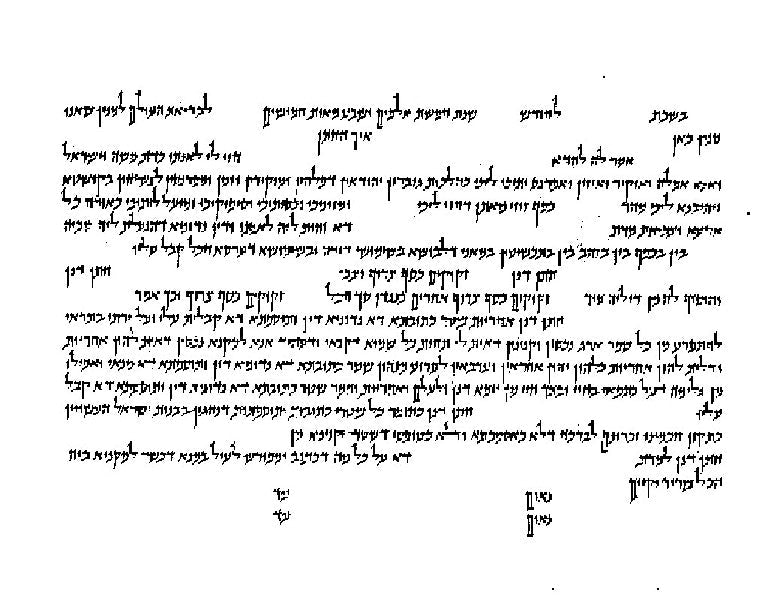 בשבת לחודש שנת חמשת אלפים ושבע מאות חמישים לבריאת העולם למנין שאנו
מנין כאן איך החתן
אמר לה להדא הוי לי לאנתו כדת משה וישראל
ואנא אפלח ואוקיר ואיזון ואפרנס יתיכי ליכי כהלכות גוברין יהודאין דפלחין ומוקירין וזנין ומפרנסין לנשיהון בקושטא
ויהבנא ליכי מהר כסף זוזי מאתן דחזי ליכי ומזוניכי וכסותיכי וסיפוקיכי ומיעל לותיכי כאורח כל
ארעא וצביאת מרת דא והות ליה לאנתו ודין נדוניא דהנעלת ליה מבית
בין בכסף בין בזהב בין בתכשיטין במאני דלבושא בשימושי דירה ובשימושא דערסא הכל קבל עליו
חתן דנן זקוקים כסף צרוף וצבי חתן דנן
והוסיף לה מן דיליה עוד זקוקים כסף צרוף אחרים כנגדן סך הכל זקוקים כסף צרוף וכך אמר
חתן דנן אחריות שטר כתובתא דא נדוניא דין ותוספתא דא קבלית עלי ועל ירתי בתראי
להתפרע מן כל שפר ארג נכסין וקנינין דאית לי תחות כל שמיא דקנאי ודעתיד אנא למקנא נכסין דאית להון אחריות
ודלית להון אחריות כלהון יהון אחראין וערבאין לפרוע מנהון שטר כתובתא דא נדוניא דין ותוספתא דא מנאי ואפילו
מן גלימא דעל כתפאי בחיי ובתר חיי מן יומא דנן ולעלם ואחריות וחומר שטר כתובתא דא נדוניא דין ותוספתא דא קבל
עליו חתן דנן כחומר כל שטרי כתובות ותוספתות דנהגין בבנות ישראל העשויין
כתקון חכמינו זכרונם לברכה דלא כאסמכתא ודלא כטופסי דשטרי וקנינא מן
חתן דנן למרת דא על כל מה דכתוב ומפורש לעיל במנא דכשר למקניא ביה
הכל שריר וקיים
נאום עד
נאום עד